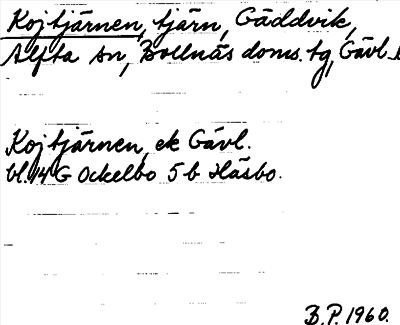 Kojtjärnen, tjärn, Gäddvik,
Alfta sn, Bollnäs doms. tg, Gävl.
Kojtjärnen, ek Gävl.
bl. 14 G Ockelbo 5 b Häsbo.
B.P. 1960.